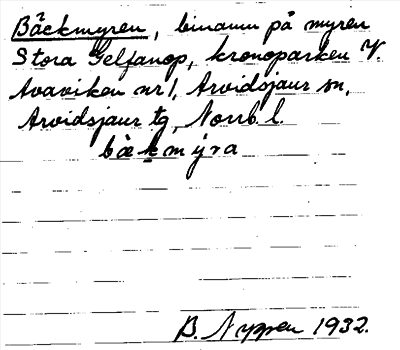 Bäckmyren, binamn på myren
Stora Gelfanop, kronoparken V.
Avaviken nr 1, Arvidsjaur sn,
Arvidsjaur tg, Norrb. l.
bäkmýra
B. Nyppen 1932.